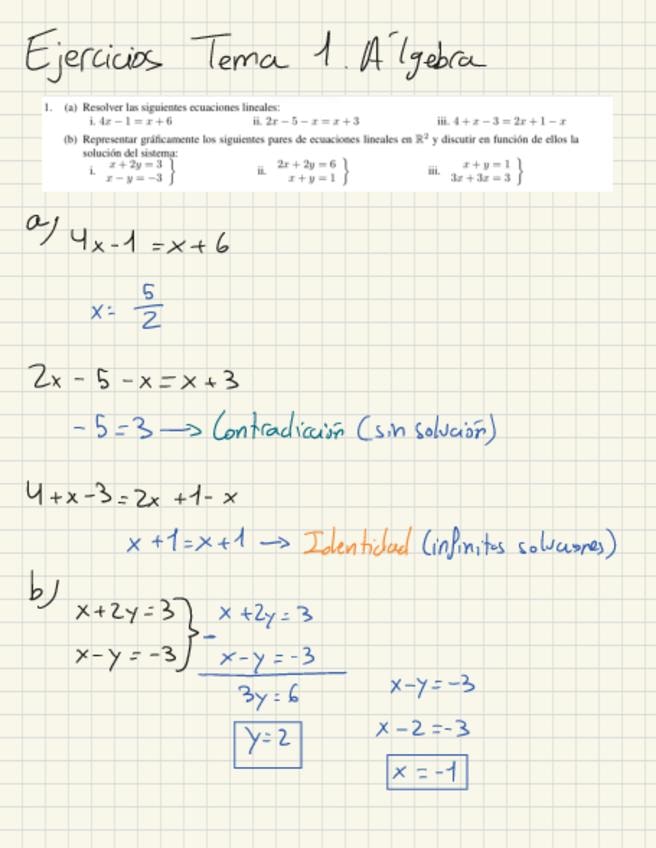 Ejercicios Tema 1. Álgebra
1. (a) Resolver las siguientes ecuaciones lineales:
i. 4x − 1 = x + 6 ii. 2x − 5 − x = x + 3 iii. 4 + x − 3 = 2x + 1 − x
(b) Representar gráficamente los siguientes pares de ecuaciones lineales en ℝ² y discutir en función de ellos la
solución del sistema:
i. x + 2y = 3 } ii. 2x + 2y = 6 } iii. x + y = 1 }
x − y = −3 x + y = 1 3x + 3x = 3
a) 4x-1 = x+6
x = 5/2
2x - 5 - x = x + 3
-5=3 → Contradicción (sin solución)
4+x-3=2x+1-x
x+1=x+1 → Identidad (infinitas soluciones)
b) x+2y=3 } x+2y=3
x-y=-3 - x-y=-3
3y=6 x-y=-3
y=2 x-2=-3
x=-1